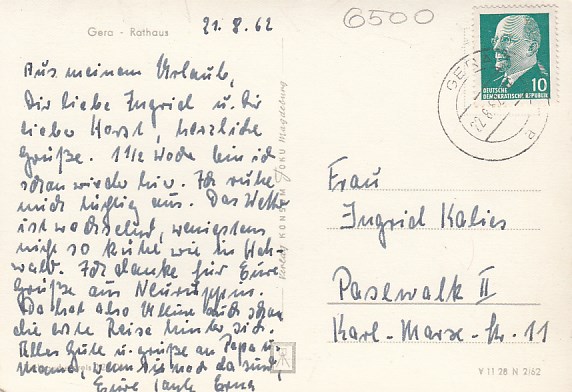 Gera - Rathaus
21.8.62
6500
GERA
22.8.6
R
10
DEUTSCHE
DEMOKRATISCHE REPUBLIK
Aus meinem Urlaub,
Dir liebe Ingrid u. Dir
lieber Horst, herzliche
Grüße. 1 1/2 Woche bin ich
schon wieder hier. Ich ruhe
mich tüchtig aus. Das Wetter
ist wechselnd, wenigstens
nicht so kühl wie in
wald. Ich danke für Eure
Grüße aus Neuruppin.
Da hat also auch schon
die erste Reise hinter sich.
Alles Gute u. grüße an Papa u.
Mama, wenn sie noch da sind,
Eure Tante Erna
Verlag KONSUM FOKU Magdeburg
Frau
Ingrid Kalies
Pasewalk II
Karl-Marx-Str. 11
V 11 28 N 2/62